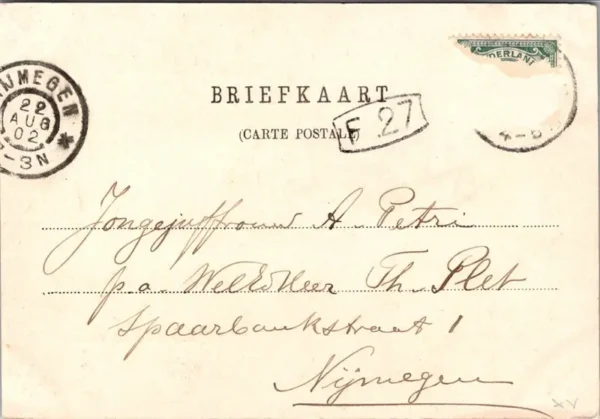 DERLAND
IJMEGEN
22
AUG
02
-3N
4-5
BRIEFKAART
(CARTE POSTALE)
F 27
Jongejuffrouw A. Petri
p.a. WelEdHeer Th. Plet
Spaarbankstraat 1
Nijmegen
XV